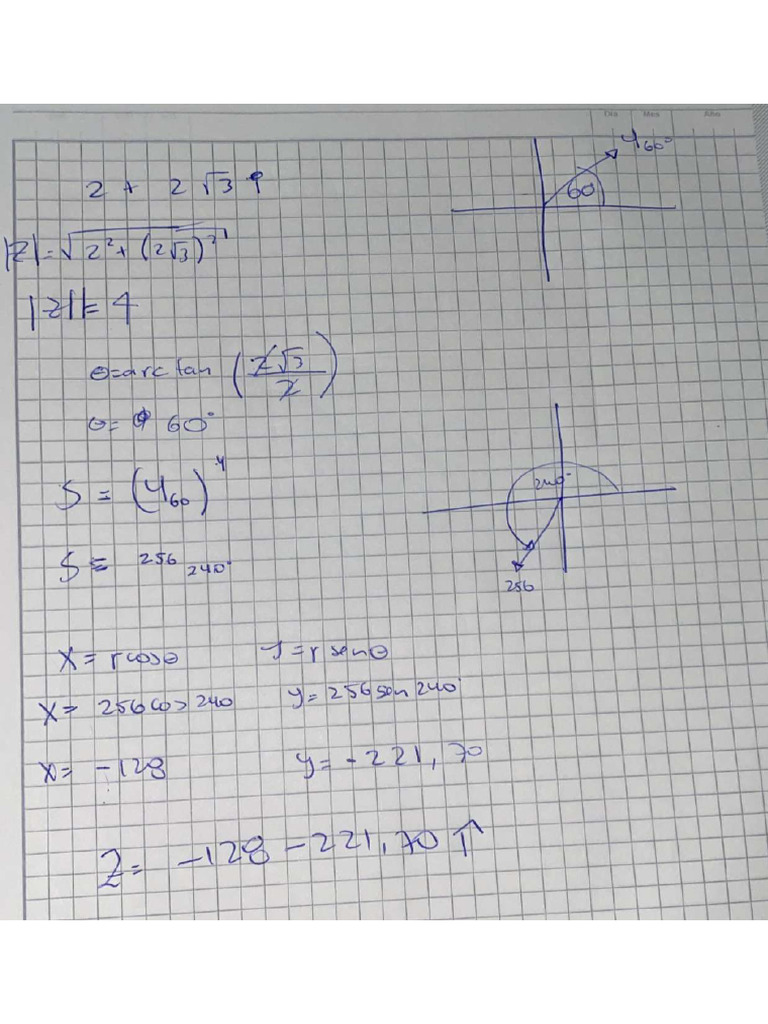 Día Mes Año
2 + 2√3 i
4₆₀°
60
|Z| = √(2² + (2√3)²)
|Z| = 4
θ = arc tan (2√3 / 2)
θ = 60°
S = (4₆₀)⁴
240°
S = 256 ₂₄₀°
256
x = r cos θ y = r sen θ
x = 256 cos 240 y = 256 sen 240°
x = -128 y = -221,70
Z = -128 - 221,70 i